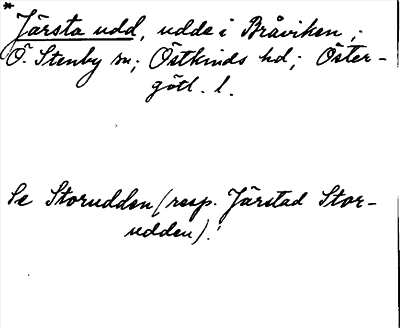 * Järsta udd, udde i Bråviken;
Ö. Stenby sn; Östkinds hd; Öster-
götl. l.
Se Storudden (resp. Järstad Stor-
udden).